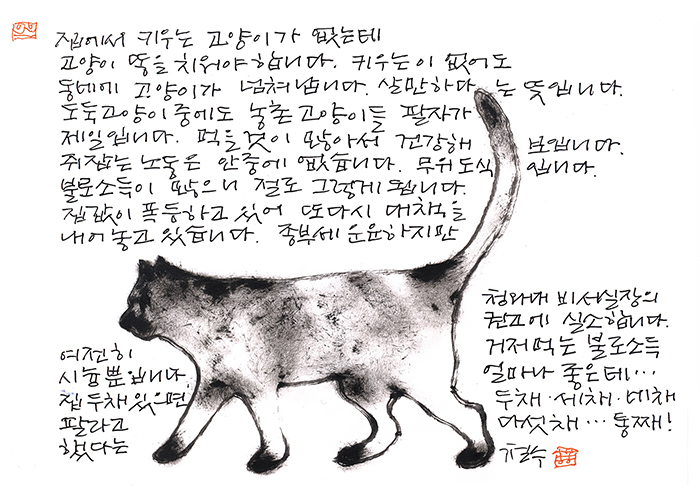 집에서 키우는 고양이가 없는데
고양이 똥을 치워야 합니다. 키우는 이 없어도
동네에 고양이가 넘쳐납니다. 살만하다는 뜻입니다.
도둑고양이 중에도 농촌 고양이들 팔자가
제일입니다. 먹을것이 많아서 건강해 보입니다.
쥐잡는 노동은 안중에 없습니다. 무위도식입니다.
불로소득이 많으니 절로 그렇게 됩니다.
집값이 폭등하고 있어 또다시 대책을
내어놓고 있습니다. 종부세 운운하지만
여전히
시늉뿐입니다
집 두채 있으면
팔라고
했다는
청와대 비서실장의
권고에 실소합니다.
거저먹는 불로소득
얼마나 좋은데…
두채·세채·네채
다섯채… 통째!
철수